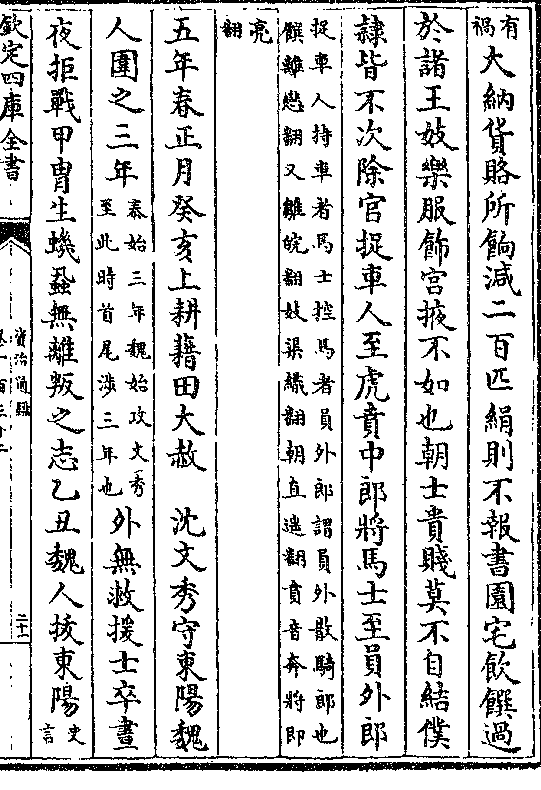 有禍大納貨賂所餉減二百匹絹則不報書園宅飲饌過
於諸王妓樂服飾宮掖不如也朝士貴賤莫不自結僕
隷皆不次除官捉車人至虎賁中郎將馬士至員外郎
捉車人持車者馬士控馬者員外郎謂員外散騎郎也
饌雛戀翻又雛皖翻妓渠綺翻朝直遙翻賁音奔將即
亮翻
五年春正月癸亥上耕藉田大赦　沈文秀守東陽魏
人圍之三年泰始三年魏始攻文秀至此時首尾涉三年也外無救援士卒晝
夜拒戰甲冑生蟣蝨無離叛之志乙丑魏人拔東陽史言
欽定四庫全書
資治通鑑
卷一百三十二
二十一